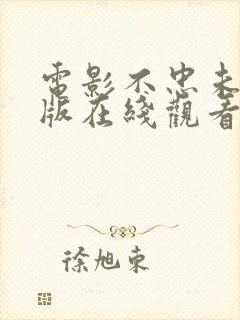 電影不忠未
版在綫觀看
徐旭東